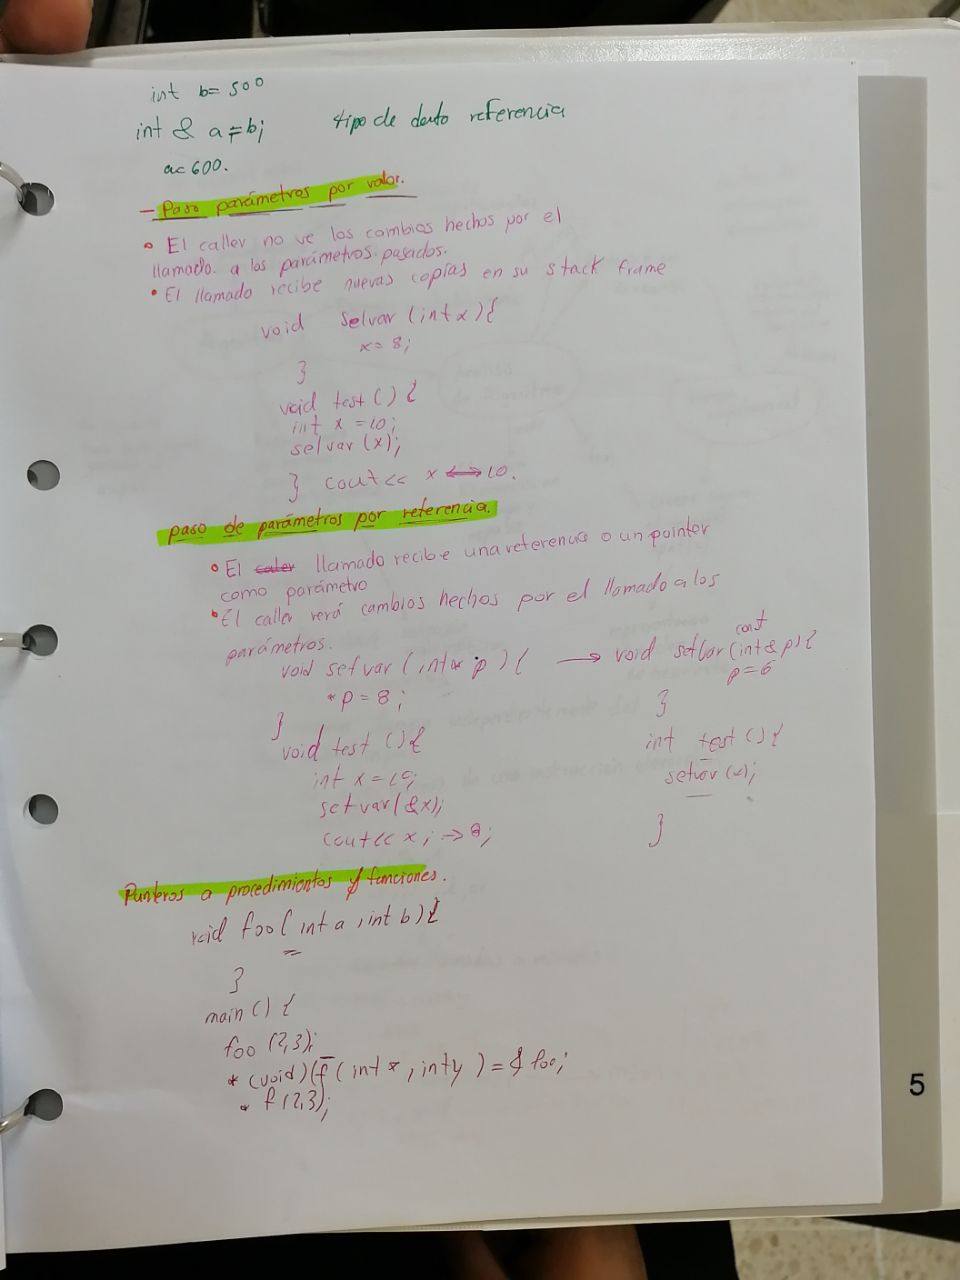 int b= 500
int & a = b; tipo de dato referencia
a= 600.
- Paso parámetros por valor.
• El caller no ve los cambios hechos por el
llamado. a los parámetros pasados.
• El llamado recibe nuevas copias en su stack frame
void selvar (int x) {
x= 8;
}
void test () {
int x = 10;
selvar (x);
} cout << x ⟷ 10.
paso de parámetros por referencia.
• El caller llamado recibe una referencia o un pointer
como parámetro
• El caller verá cambios hechos por el llamado a los
parámetros.
void setvar (int* p) { → void setvar (const int & p) {
*p = 8; p = 6
} }
void test () { int test () {
int x = 10; setvar (x);
set var (&x);
cout << x; → 8; }
Punteros a procedimientos y funciones.
void foo ( int a , int b) {
}
main () {
foo (2,3);
* (void) (f (int x, int y ) = & foo;
* f (2,3);
5